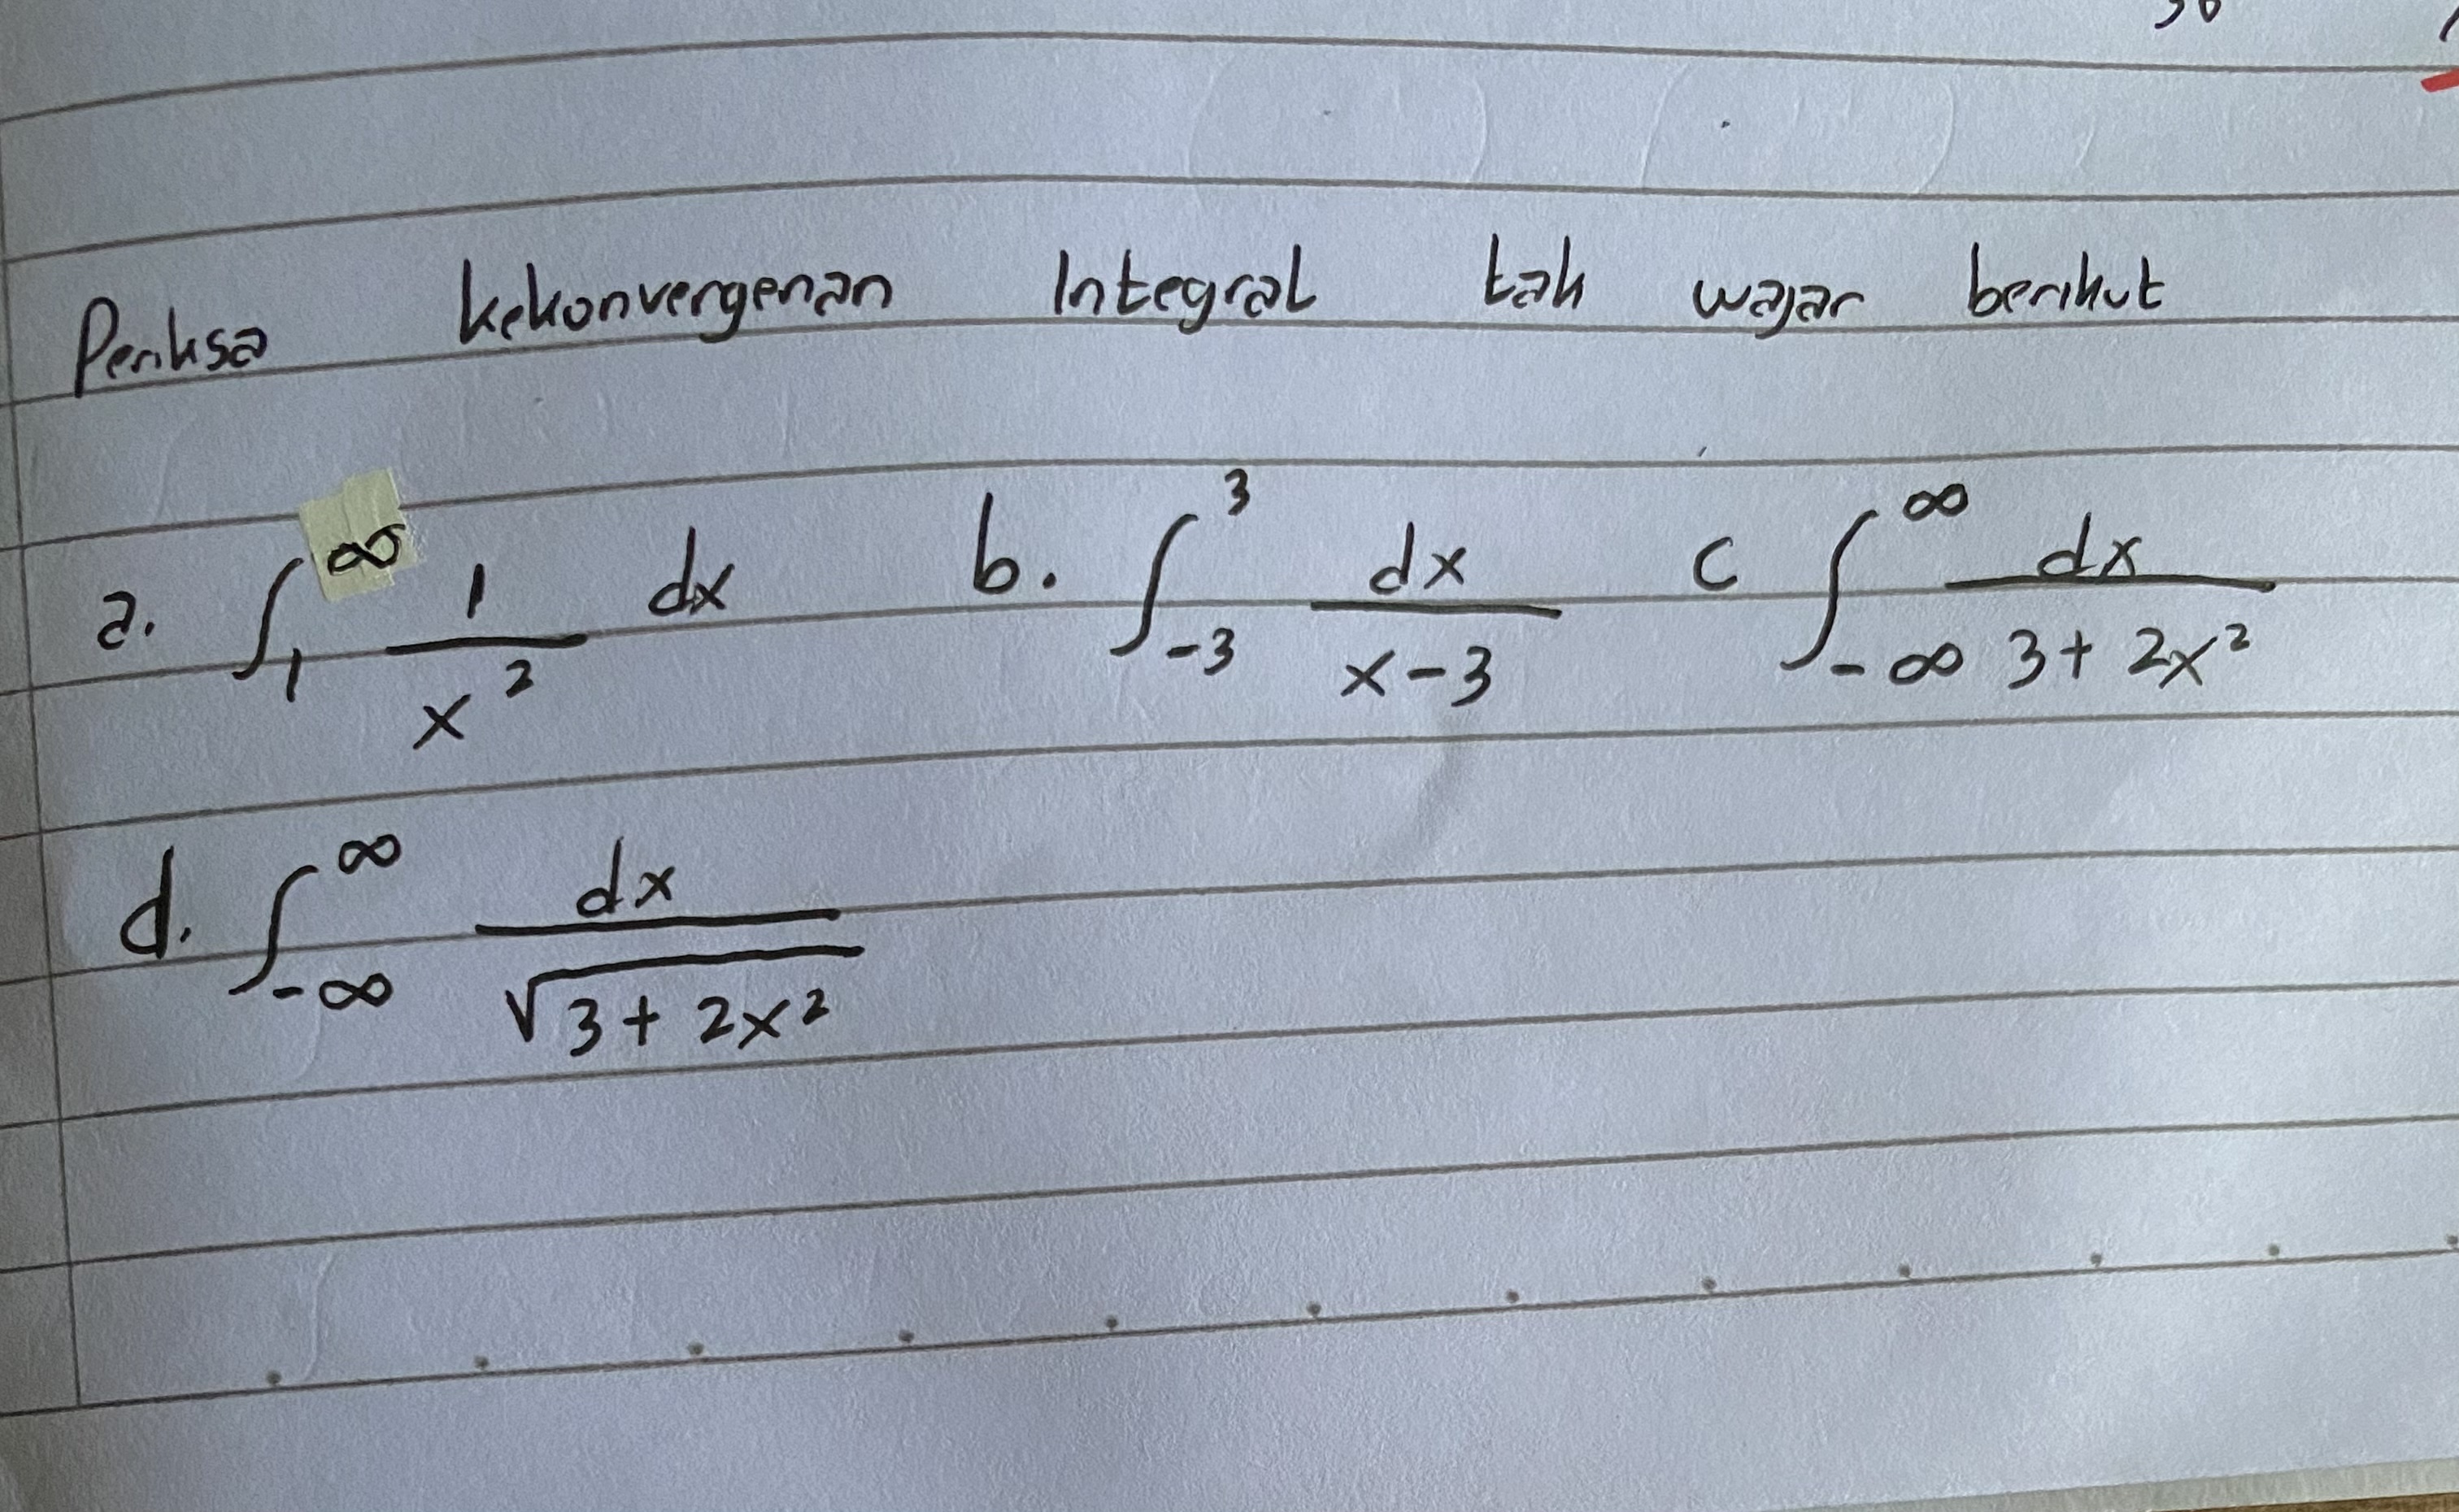 Periksa kekonvergenan Integral tak wajar berikut
a. ∫₁^∞ 1/x² dx b. ∫₋₃^3 dx/(x-3) c ∫₋∞^∞ dx/(3+2x²)
d. ∫₋∞^∞ dx/√(3+2x²)